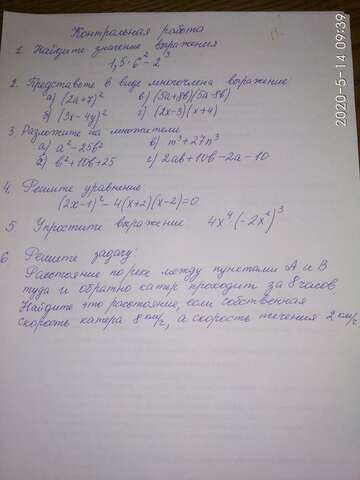 Контрольная работа
1. Найдите значение выражения
1,5·6² - 2³
2. Представьте в виде многочлена выражение
а) (2а+7)² в) (5а+8b)(5а-8b)
б) (3х-4у)² г) (2х-3)(х+4)
3 Разложите на множители
а) а²-25b² в) m³+27n³
б) b²+10b+25 г) 2аb+10b-2а-10
4. Решите уравнение
(2х-1)² - 4(х+2)(х-2)=0
5 Упростите выражение 4х⁴·(-2х²)³
6 Решите задачу:
Расстояние по реке между пунктами А и В
туда и обратно катер проходит за 8 часов
Найдите это расстояние, если собственная
скорость катера 8 км/ч, а скорость течения 2 км/ч.
2020-5-14 09:39